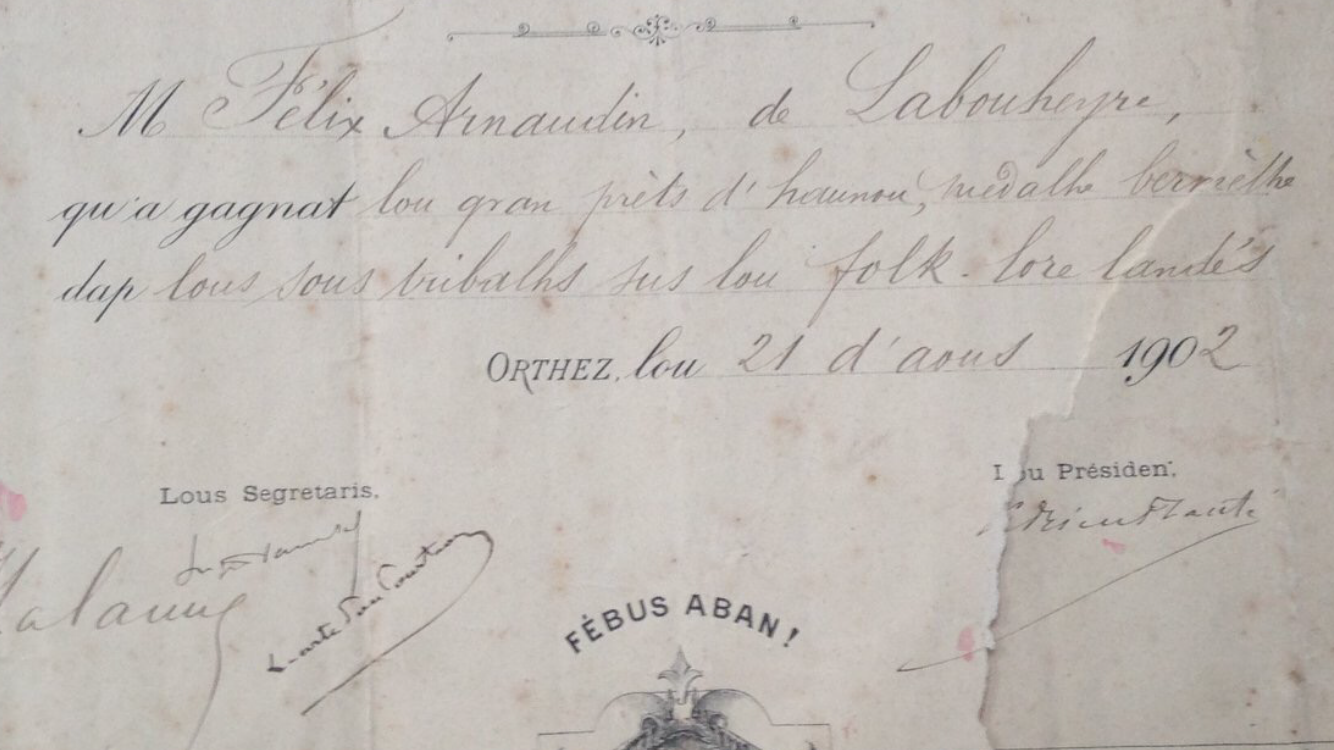 M Félix Arnaudin, de Labouheyre,
qu'a gagnat lou gran prèts d'haunou, medalhe bermèlhe
dap lous sous tribalhs sus lou folk-lore landés
ORTHEZ, lou 21 d'aous 1902
Lous Segretaris, Lou Présiden,
Lalanne
FÉBUS ABAN!